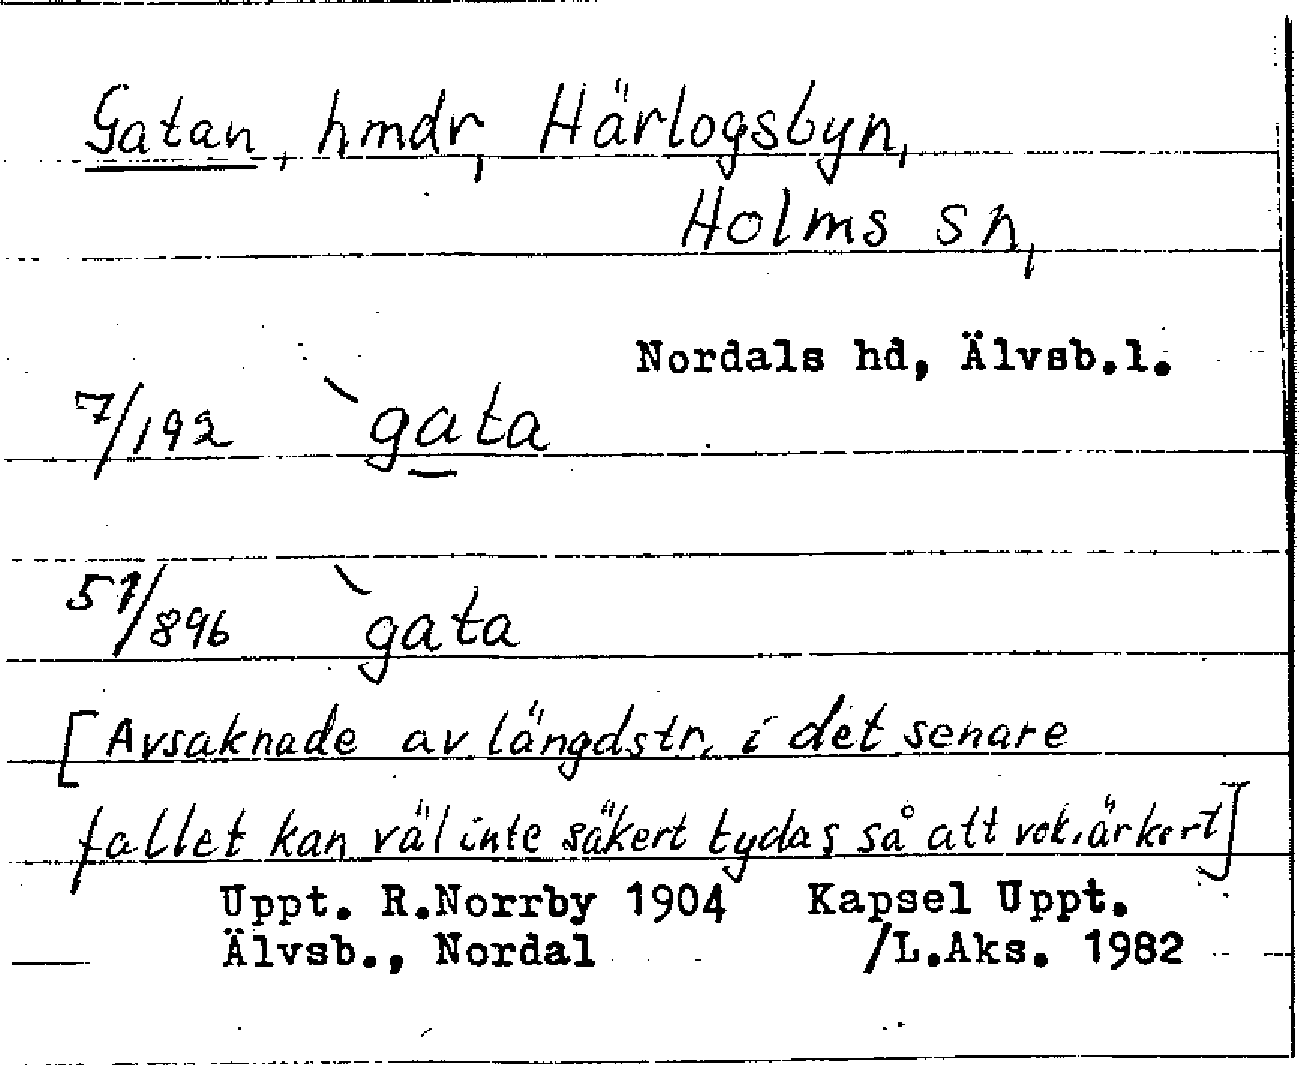 Gatan, hmdr, Härlogsbyn,
Holms sn,
Nordals hd, Älvsb.l.
7/192 `gata
51/896 `gata
[Avsaknade av längdstr. i det senare
fallet kan väl inte säkert tydas så att vok. är kort]
Uppt. R.Norrby 1904 Kapsel Uppt.
Älvsb., Nordal /L.Aks. 1982